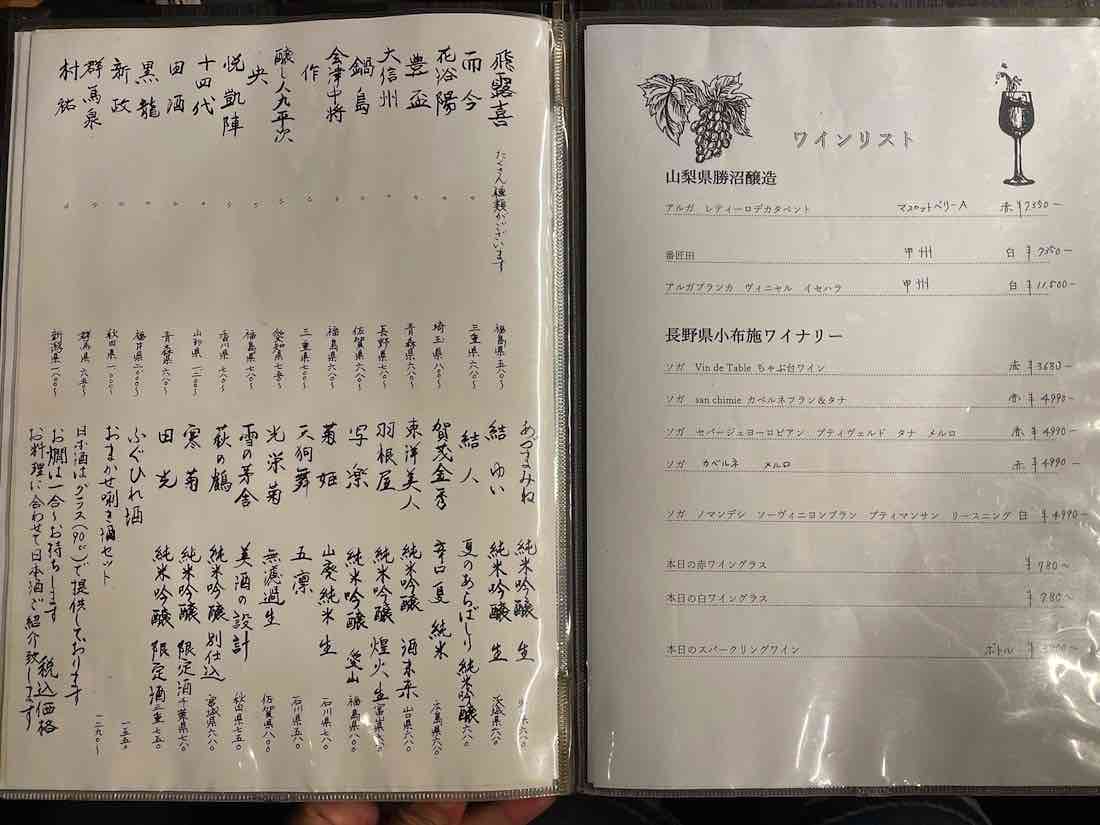 飛露喜 たくさん種類がございます 福島県 五八〇〜
而今 〃 三重県
花浴陽 〃 埼玉県 八〇〇〜
豊盃 〃 青森県 六八〇〜
大信州 〃 長野県 七〇〜
鍋島 〃 佐賀県 六八〇〜
会津中将 〃 福島県 六八〇〜
作 〃 三重県 七〇〇〜
醸し人九平次 〃 愛知県 七五〇〜
央 〃 福島県 八〇〜
悦凱陣 〃 香川県 七八〇〜
十四代 〃 山形県 一二〇〜
田酒 〃 青森県 六八〇〜
黒龍 〃 福井県 二〇〇〇〜
新政 〃 秋田県 一〇〇〇〜
群馬泉 〃 群馬県 六五〇〜
村祐 〃 新潟県 一八〇〇〜
あづまみね 純米吟醸 生 六八〇
結ゆい 純米吟醸 生 茨城県 六八〇
結人 夏のあらばしり 純米吟醸 六八〇
賀茂金秀 辛口夏純米 広島県 六八〇
東洋美人 純米吟醸 酒未来 山口県 六八〇
羽根屋 純米吟醸 煌火 生 富山県 六八〇
写楽 純米吟醸 愛山 福島県 八〇〇
菊姫 山廃純米 生 石川県 七八〇
天狗舞 五凛 石川県 五八〇
光栄菊 無濾過生 佐賀県 八〇〇
雪の茅舎 美酒の設計 秋田県 七五〇
萩の鶴 純米吟醸 別仕込 宮城県 六八〇
寒菊 純米吟醸 限定酒 千葉県 七八〇
田光 純米吟醸 限定酒 三重 七五〇
ふぐひれ酒 一一五〇
おまかせ唎き酒セット 一二九〇〜
日本酒はグラス(90cc)で提供しております
お燗は一合〜お待ちします
お料理に合わせて日本酒ご紹介致します
税込価格
ワインリスト
山梨県勝沼醸造
アルガ レティーロデカタベント マスカットベリーA 赤 ¥7350ー
番匠田 甲州 白 ¥7350ー
アルガブランカ ヴィニャル イセハラ 甲州 白 ¥11,500ー
長野県小布施ワイナリー
ソガ Vin de Table ちゃぶ台ワイン 赤 ¥3680ー
ソガ san chimie カベルネフラン&タナ 赤 ¥4990ー
ソガ セパージュヨーロピアン プティヴェルド タナ メルロ 赤 ¥4990ー
ソガ カベルネ メルロ 赤 ¥4990ー
ソガ ノマンデシ ソーヴィニヨンブラン プティマンサン リースニング 白 ¥4990ー
本日の赤ワイングラス ¥780〜
本日の白ワイングラス ¥780〜
本日のスパークリングワイン ボトル